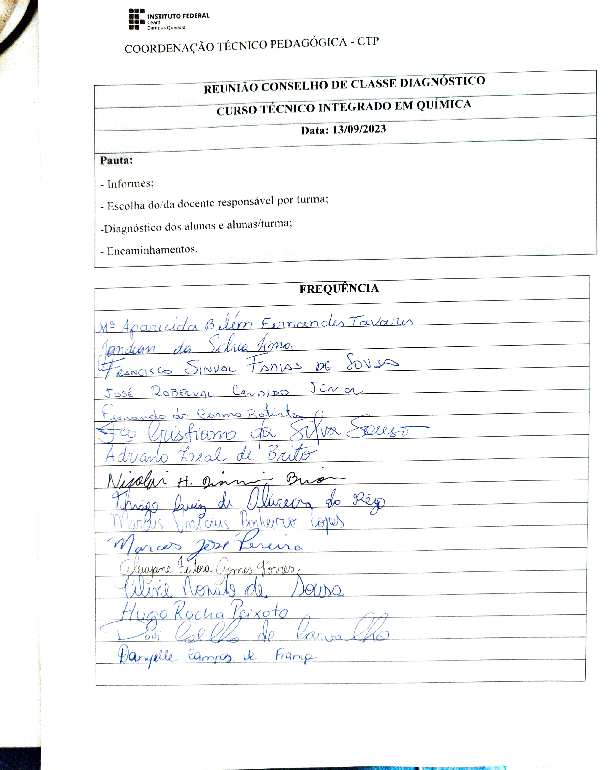 INSTITUTO FEDERAL
Ceará
Campus Quixadá
COORDENAÇÃO TÉCNICO PEDAGÓGICA - CTP
REUNIÃO CONSELHO DE CLASSE DIAGNÓSTICO
CURSO TÉCNICO INTEGRADO EM QUÍMICA
Data: 13/09/2023
Pauta:
- Informes;
- Escolha do/da docente responsável por turma;
-Diagnóstico dos alunos e alunas/turma;
- Encaminhamentos.
FREQUÊNCIA
Mª Aparecida Belém Fernandes Tavares
da Silva
FRANCISCO SINVAL FARIAS DE SOUSA
JOSÉ ROBERVAL CANDIDO JÚNIOR
Fernando do Carmo Batista
Fco Cristiano da Silva Sousa
Adriano Leal de Brito
Nicolas H.
Thiago Luiz de Oliveira do Rêgo
Marcus Vinicius Pinheiro Lopes
Marcos José Pereira
Gomes Torres
Aline Nonato de Sousa
Hugo Rocha Peixoto
Davi Coelho de Carvalho
Danyelle Campos de França